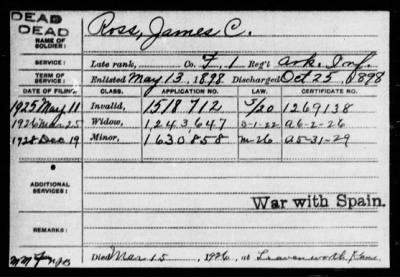 DEAD
DEAD
NAME OF SOLDIER: Ross, James C.
SERVICE: Late rank, Co. F, 1 Reg't Ark. Inf.
TERM OF SERVICE: Enlisted May 13, 1898 Discharged Oct 25, 1898
DATE OF FILING. CLASS. APPLICATION NO. LAW. CERTIFICATE NO.
1925 May 11 Invalid, 1518712 1269138
1926 Mar 25 Widow, 1,243,647 9-1-22 A6-2-26
1928 Dec 19 Minor, 1630858 M-26 A5-31-29
ADDITIONAL SERVICES:
War with Spain.
REMARKS:
Died Mar 15, 1926, at Leavenworth, Kans.